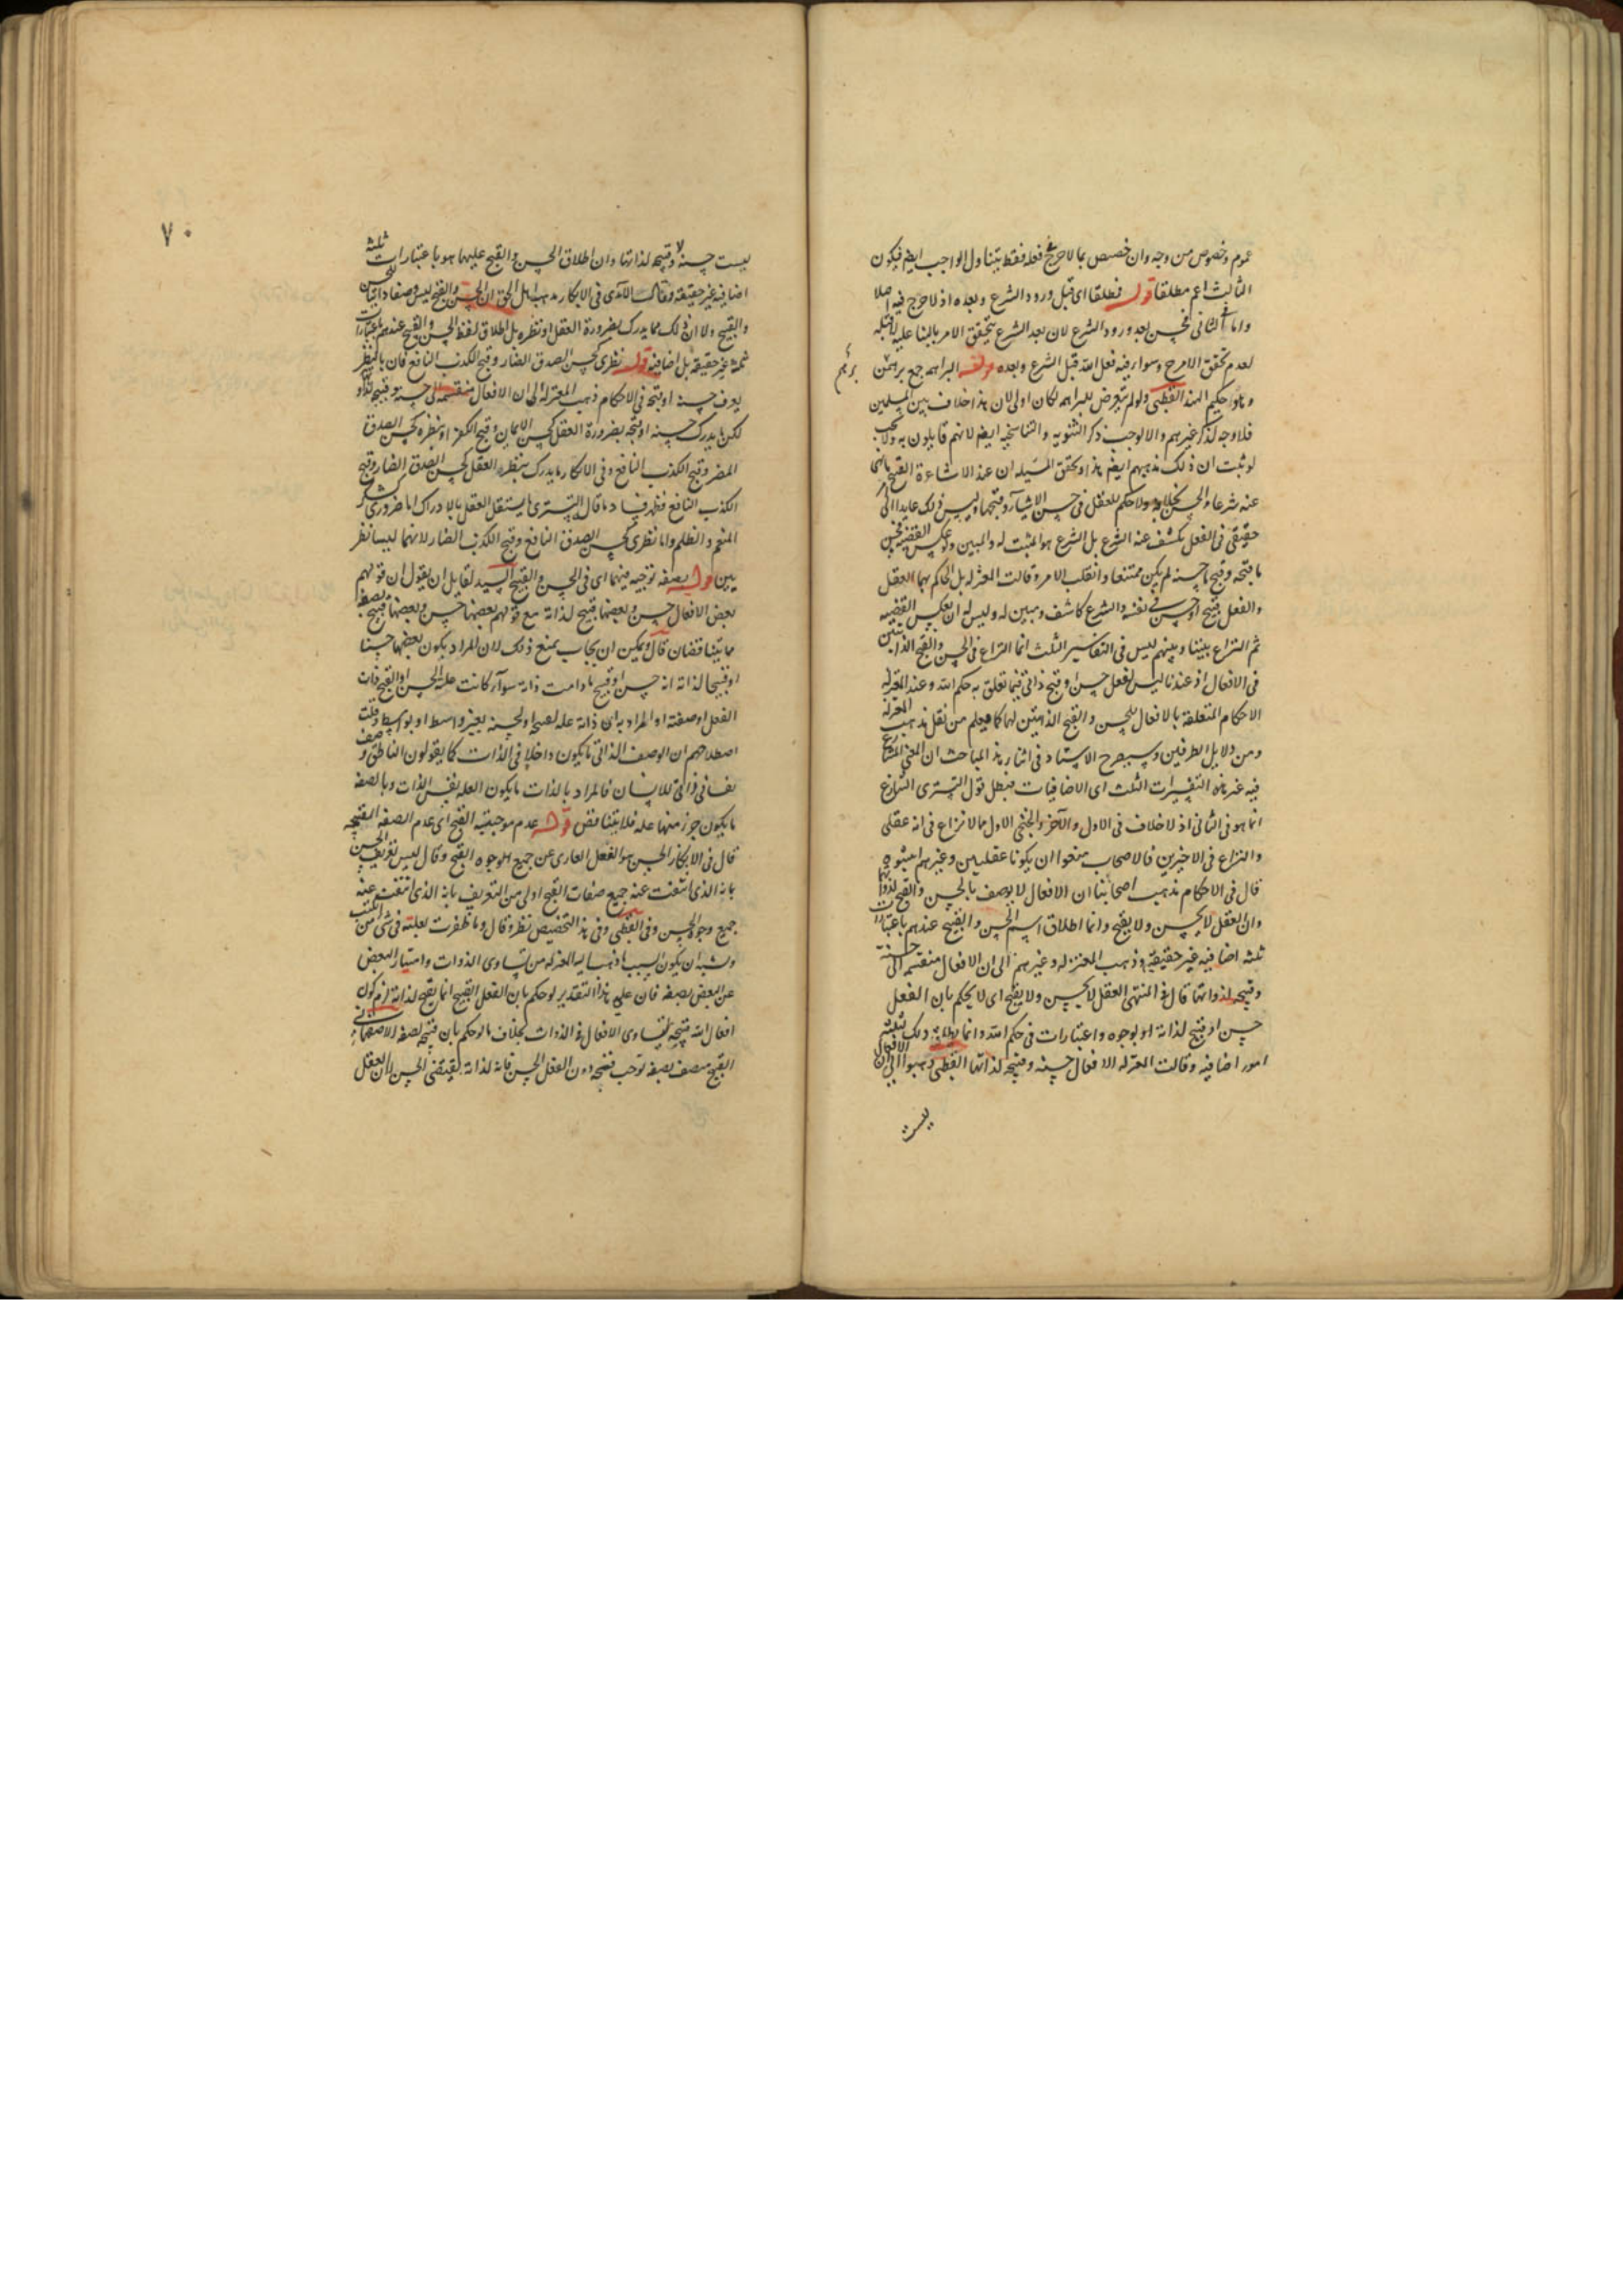 عموم وخصوص من وجه وان خصص بما لا حرج فى فعله فقط يتناول الواجب ايضا فيكون
الثالث اعم مطلقا قوله مطلقا اى قبل ورود الشرع وبعده اذ لا حرج فيه اصلا
واما الثانى فحسن بعد ورود الشرع لان بعد الشرع يتحقق الامر بالثنا عليه لا قبله
لعدم تحقق الامر ح وسواء فيه فعل الله قبل الشرع وبعده قوله البراهمه جمع برهمن
برهم
وهو حكيم الهند القطبى ولو لم يتعرض للبراهمه لكان اولى لان هذا خلاف بين المسلمين
فلا وجه لذكر غيرهم والا لوجب ذكر الثنويه والتناسخيه ايضا لانهم قايلون به
لو ثبت ان ذلك مذهبهم ايضا هذا وتحقق المسئله ان عند الاشاعرة القبيح ما نهى
عنه شرعا والحسن بخلافه ولا حكم للعقل فى حسن الاشيآء وقبحها وليس ذلك عايدا الى امر
حقيقى فى الفعل يكشف عنه الشرع بل الشرع هو المثبت له والمبين ولو عكس القضيه فحسن
ما قبحه وقبح ما حسنه لم يكن ممتنعا وانقلب الامر وقالت المعتزله بل الحاكم بهما العقل
والفعل قبيح او حسن فى نفسه والشرع كاشف ومبين له وليس له ان يعكس القضيه
ثم النزاع بيننا وبينهم ليس فى التفاسير الثلث انما النزاع فى الحسن والقبح الذاتيين
فى الافعال اذ عندنا ليس لفعل حسن او قبح ذاتى فيما تعلق به حكم الله وعند المعتزله
الاحكام المتعلقة بالافعال للحسن والقبح الذاتيتين لها كما فيعلم من نقل مذهب المعتزلة
ومن دلايل الطرفين وسيصرح الاستاد فى اثناء هذا المباحث ان المعنى المتنازع
فيه غير هذه التفسيرات الثلث اى الاضافيات فبطل قول التسترى النزاع
انما هو فى الثانى اذ لا خلاف فى الاول والآخر والخنجى الاول مما لا نزاع فى انه عقلى
والنزاع فى الاخيرين فالاصحاب منعوا ان يكونا عقليين وغيرهم اثبتوه
قال فى الاحكام مذهب اصحابنا ان الافعال لا يوصف بالحسن والقبح لذواتها
وان العقل لا يحسن ولا يقبح وانما اطلاق اسم الحسن والقبيح عندهم باعتبارات
ثلثه اضافيه غير حقيقيه وذهب المعتزله وغيرهم الى ان الافعال منقسمه الى حسنة
وقبيحه لذواتها قال فى المنتهى العقل لا يحسن ولا يقبح اى لا يحكم بان الفعل
حسن او قبيح لذاته او بوجوه واعتبارات فى حكم الله وانما يطلق ذلك بثلثة
امور اضافيه وقالت المعتزله الافعال حسنه وقبيحه لذاتها القطبى ذهبوا الى ان الافعال
ليست
٧٠
ليست حسنه ولا قبيحه لذاتها وان اطلاق الحسن والقبح عليهما هو باعتبارات ثلثة
اضافيه غير حقيقته وقال الآمدى فى الابكار مذهب اهل الحق ان الحسن والقبح ليس وصفا ذاتيا للحسن
والقبيح ولا ان ذلك مما يدرك بضرورة العقل او نظره بل اطلاق لفظ الحسن والقبح عندهم باعتبارات
ثلثة غير حقيقية بل اضافيه قوله نظرى كحسن الصدق الضار وقبح الكذب النافع فان بالنظر
يعرف حسنه او قبحه فى الاحكام ذهب المعتزلة الى ان الافعال منقسمة الى حسنة وقبيحه لذواتها
لكن ما يدرك حسنه او قبحه بضرورة العقل كحسن الايمان وقبح الكفر او بنظره كحسن الصدق
المضر وقبح الكذب النافع وفى الابكار ما يدرك بنظره العقل كحسن الصدق الضار وقبح
الكذب النافع فظهر فساد ما قال التسترى ما يستقل العقل بالادراك اما ضرورى كشكر
المنعم والظلم واما نظرى كحسن الصدق النافع وقبح الكذب الضار لانهما ليسا نظر
يين قوله بصفه توجبه فيهما اى فى الحسن والقبح السيد لقايل ان يقول ان قولهم
بعض الافعال حسن وبعضها قبيح لذاته مع قولهم بعضها حسن وبعضها قبيح بصفه
مما يتناقضان قال ويمكن ان يجاب بمنع ذلك لان المراد بكون بعضها حسنا
او قبيحا لذاته انه حسن او قبيح ما دامت ذاته سوآء كانت علة الحسن او القبح ذات
الفعل او صفته او المراد به ان ذاته علة لقبحه او لحسنه بغير واسط او بوسط وقلت
اصطلاحهم ان الوصف الذاتى ما يكون داخلا فى الذات كما يقولون الناطق وصف
نفسانى ذاتى للانسان فالمراد بالذات ما يكون العله نفس الذات وبالصفه
ما يكون جزء منها عله فلا يتناقض قوله عدم موجبيه القبح اى عدم الصفه المقبحه
قال فى الابكار الحسن هو الفعل العارى عن جميع وجوه القبح وقال ليس تعريف الحسن
بانه الذى انتفت عنه جميع صفات القبح اولى من التعريف بانه الذى انتفت عنه
جميع وجوه الحسن وفى القطبى وفى هذا التخصيص نظر وقال وما ظفرت بعلته فى شى من الكتب
ويشبه ان يكون السبب ما ذهب اليه المعتزله من تساوى الذوات وامتياز البعض
عن البعض بصفه فان على هذا التقدير لو حكم بان الفعل القبيح انما يقبح لذاته لزم كون
افعال الله قبيحه لتساوى الافعال فى الذوات بخلاف ما لو حكم بان قبحه لصفه الاصفهانى
القبيح متصف بصفه توجب قبحه دون الفعل الحسن فانه لذاته يقتضى الحسن لان العقل